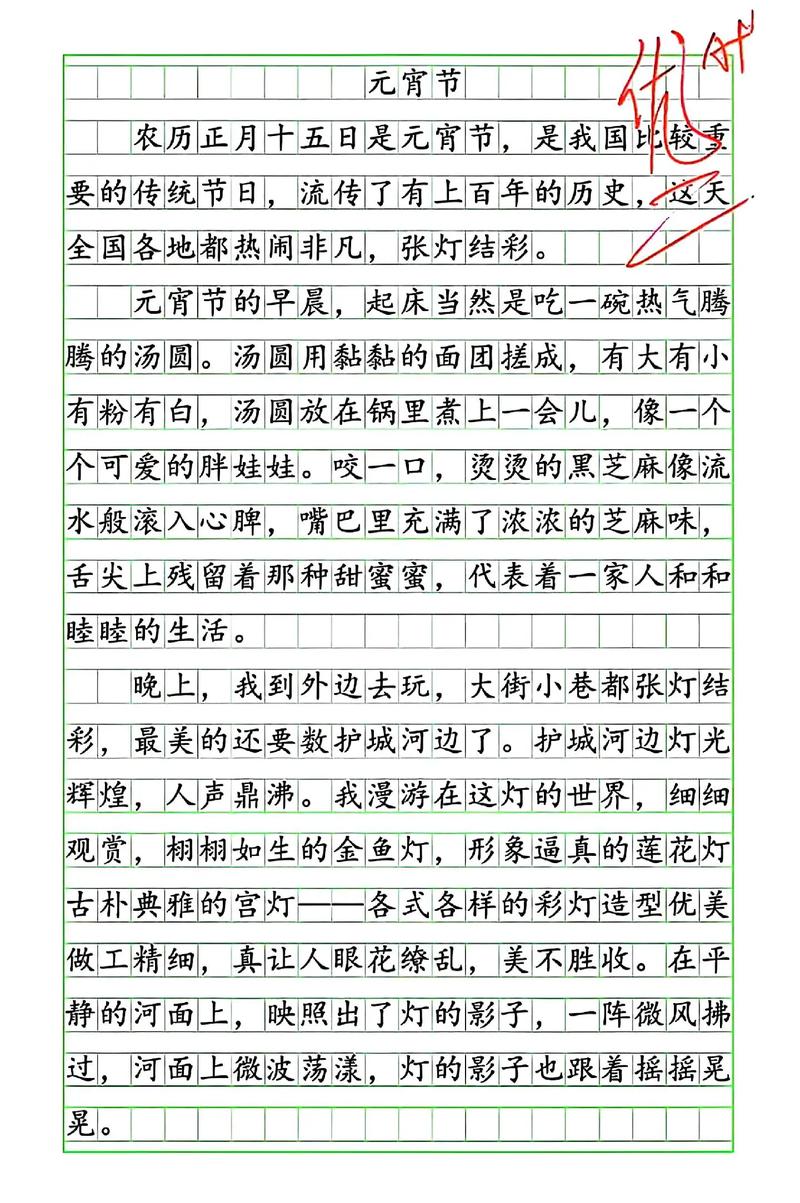 优 A+
元宵节
农历正月十五日是元宵节，是我国比较重
要的传统节日，流传了有上百年的历史，这天
全国各地都热闹非凡，张灯结彩。
元宵节的早晨，起床当然是吃一碗热气腾
腾的汤圆。汤圆用黏黏的面团搓成，有大有小
有粉有白，汤圆放在锅里煮上一会儿，像一个
个可爱的胖娃娃。咬一口，烫烫的黑芝麻像流
水般滚入心脾，嘴巴里充满了浓浓的芝麻味，
舌尖上残留着那种甜蜜蜜，代表着一家人和和
睦睦的生活。
晚上，我到外边去玩，大街小巷都张灯结
彩，最美的还要数护城河边了。护城河边灯光
辉煌，人声鼎沸。我漫游在这灯的世界，细细
观赏，栩栩如生的金鱼灯，形象逼真的莲花灯
古朴典雅的宫灯——各式各样的彩灯造型优美
做工精细，真让人眼花缭乱，美不胜收。在平
静的河面上，映照出了灯的影子，一阵微风拂
过，河面上微波荡漾，灯的影子也跟着摇摇晃
晃。